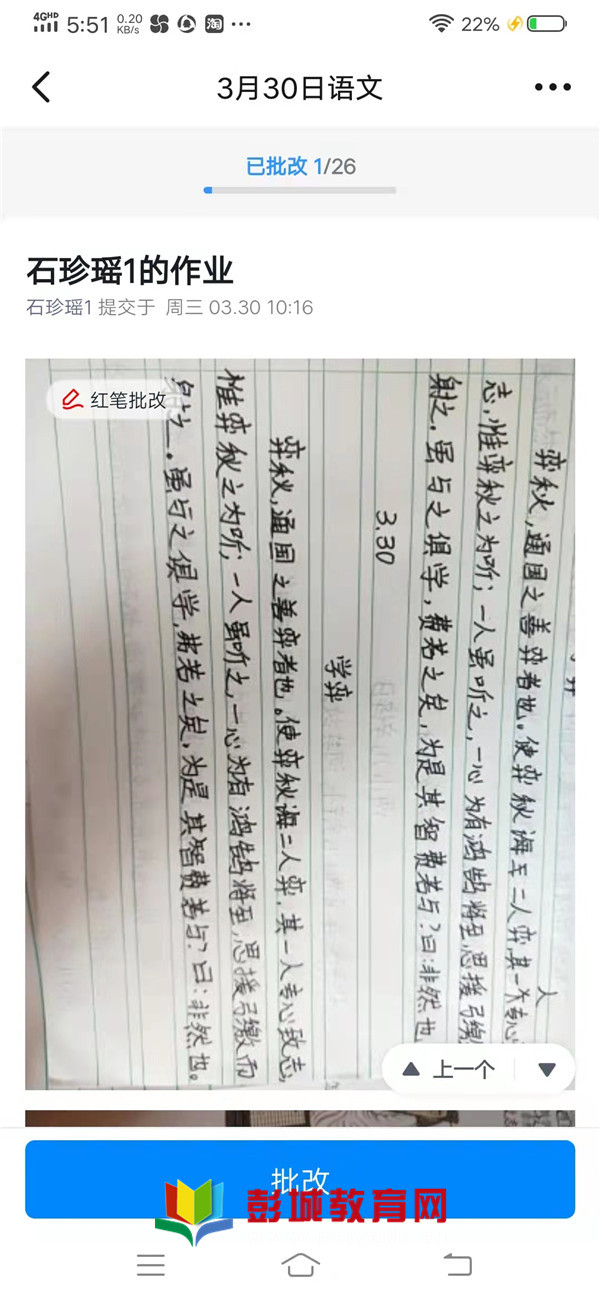 4GHD 5:51 0.20 KB/s 淘 ... 22%
3月30日语文
已批改 1/26
石珍瑶1的作业
石珍瑶1 提交于 周三 03.30 10:16
红笔批改
弈
弈秋,通国之善弈者也。使弈秋诲二人弈,其一人专心
志,惟弈秋之为听;一人虽听之,一心为有鸿鹄将至,思援弓缴
射之。虽与之俱学,费若之矣,为是其智费若与?曰:非然也
3.30
学弈
弈秋,通国之善弈者也。使弈秋诲二人弈,其一人专心致志,
惟弈秋之为听;一人虽听之,一心为有鸿鹄将至,思援弓缴而
射之。虽与之俱学,费若之矣,为是其智费若与?曰:非然也。
上一个
批改
彭城教育网